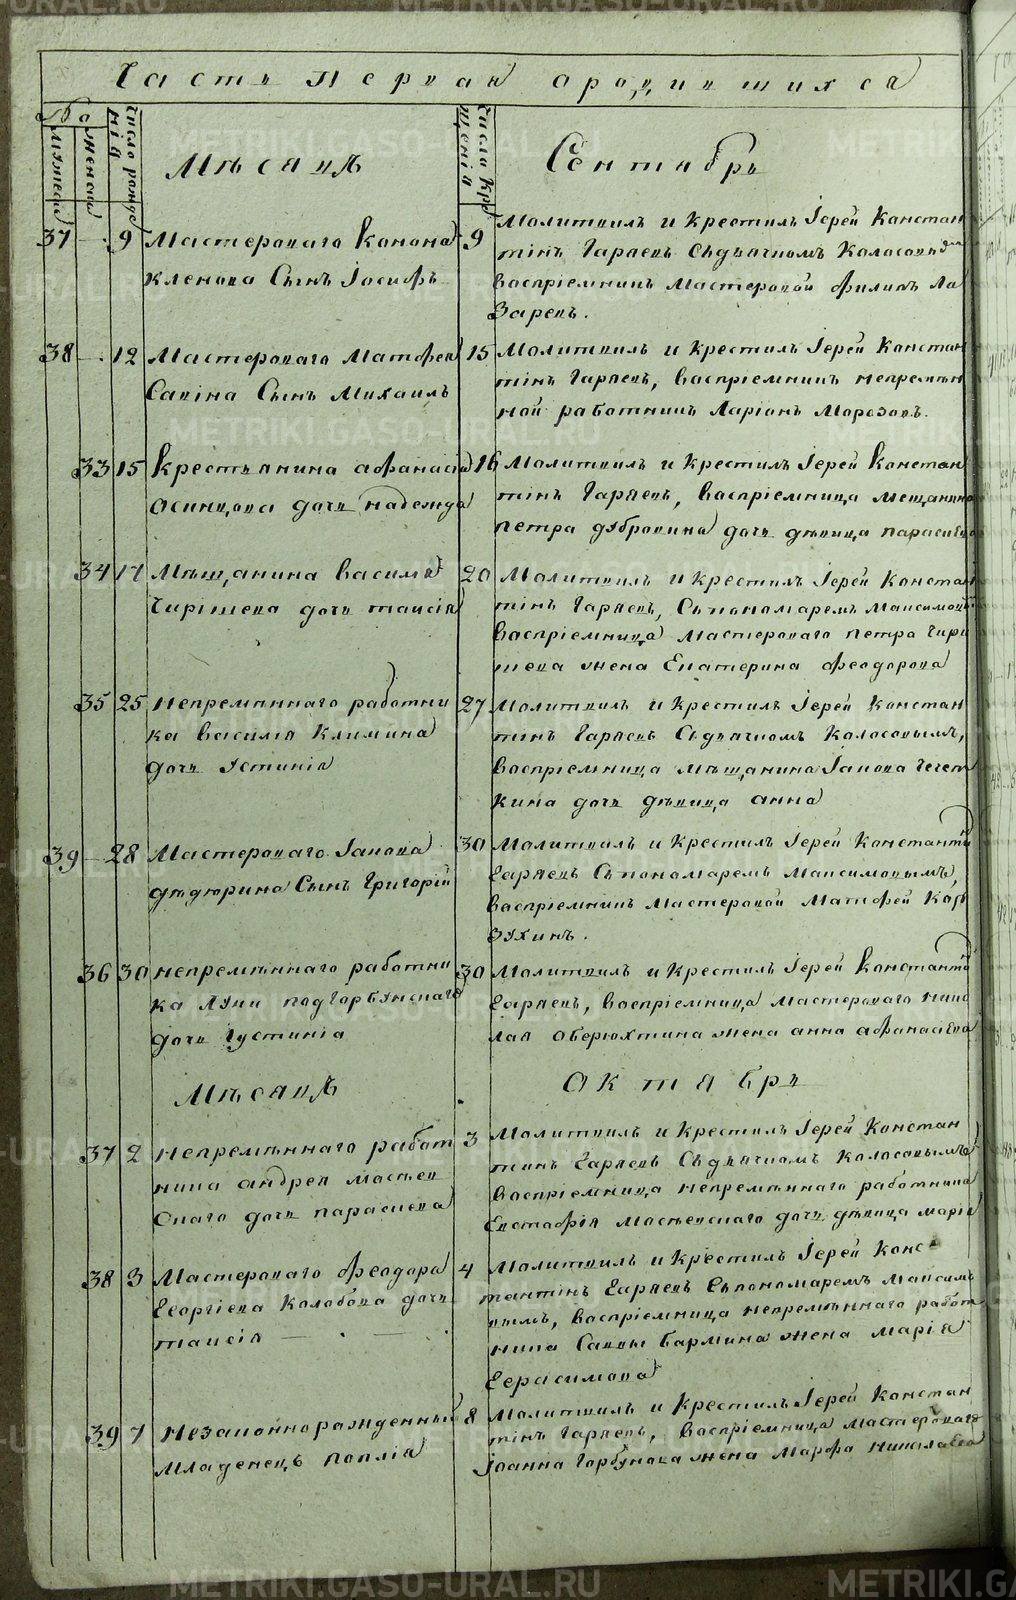 Часть Первая о родившихся
№
мужеск
женск
Число рожденія
Число крещенія
Мѣсяцъ Сентябрь
37 — 9 Мастероваго Конона
Кленова Сынъ Іосифъ
9 Молитвилъ и Крестилъ Іерей Констан
тинъ Гаряевъ Съдьячкомъ Колосовы
Воспріемникъ Мастеровой Филипъ Ла
заревъ.
38 — 12 Мастероваго Матфея
Савина Сынъ Михаилъ
15 Молитвилъ и Крестилъ Іерей Констан
тинъ Гаряевъ, Воспріемникъ непремѣн
ной работникъ Ларіонъ Морозовъ.
33 15 Крестьянина Афанасія
Осинцова дочь надежда
16 Молитвилъ и Крестилъ Іерей Констан
тинъ Гаряевъ, Воспріемница мещанина
петра дубровина дочь дѣвица параскева
34 17 Мѣщанина Василья
Чирішева дочь таисія
20 Молитвилъ и Крестилъ Іерей Констан
тинъ Гаряевъ, Съпономаремъ Максимовы
Воспріемница Мастероваго петра Чири
шева жена Екатерина Феодорова
35 25 непремѣннаго работни
ка Василія Климина
дочь Устинія
27 Молитвилъ и Крестилъ Іерей Констан
тинъ Гаряевъ Съдьячкомъ Колосовымъ,
Воспріемница Мѣщанина Іакова Чечет
кина дочь дѣвица анна
39 — 28 Мастероваго Іакова
дѣдюрина Сынъ Григорій
30 Молитвилъ и Крестилъ Іерей Константи
Гаряевъ Съпономаремъ Максимовымъ,
Воспріемникъ Мастеровой Матфей Кар
зухинъ.
36 30 непремѣннаго работни
ка Луки подгорбунскаго
дочь Іустинія
30 Молитвилъ и Крестилъ Іерей Константи
Гаряевъ, Воспріемница мастероваго нико
лая оберюхтина жена анна афанасіева
Мѣсяцъ Октябрь
37 2 непремѣннаго работ
ника андрея Маскев
скаго дочь параскева
3 Молитвилъ и Крестилъ Іерей Констан
тинъ Гаряевъ Съдьячкомъ Колосовымъ
Воспріемница непремѣннаго работника
Евстафія Москевскаго дочь дѣвица марія
38 3 Мастероваго Феодора
Георгіева Колобова дочь
таисія — . —
4 Молитвилъ и Крестилъ Іерей Конс-
тантинъ Гаряевъ Съпономаремъ Максимо
вымъ, Воспріемница непремѣннаго работ
ника Саввы бармина жена Марія
Герасимова
39 7 незаконнорожденный
Младенецъ
8 Молитвилъ и Крестилъ Іерей Констан
тинъ Гаряевъ, Воспріемница Мастероваго
Іоанна Горбунова жена Марфа николаева
METRIKI.GASO-URAL.RU